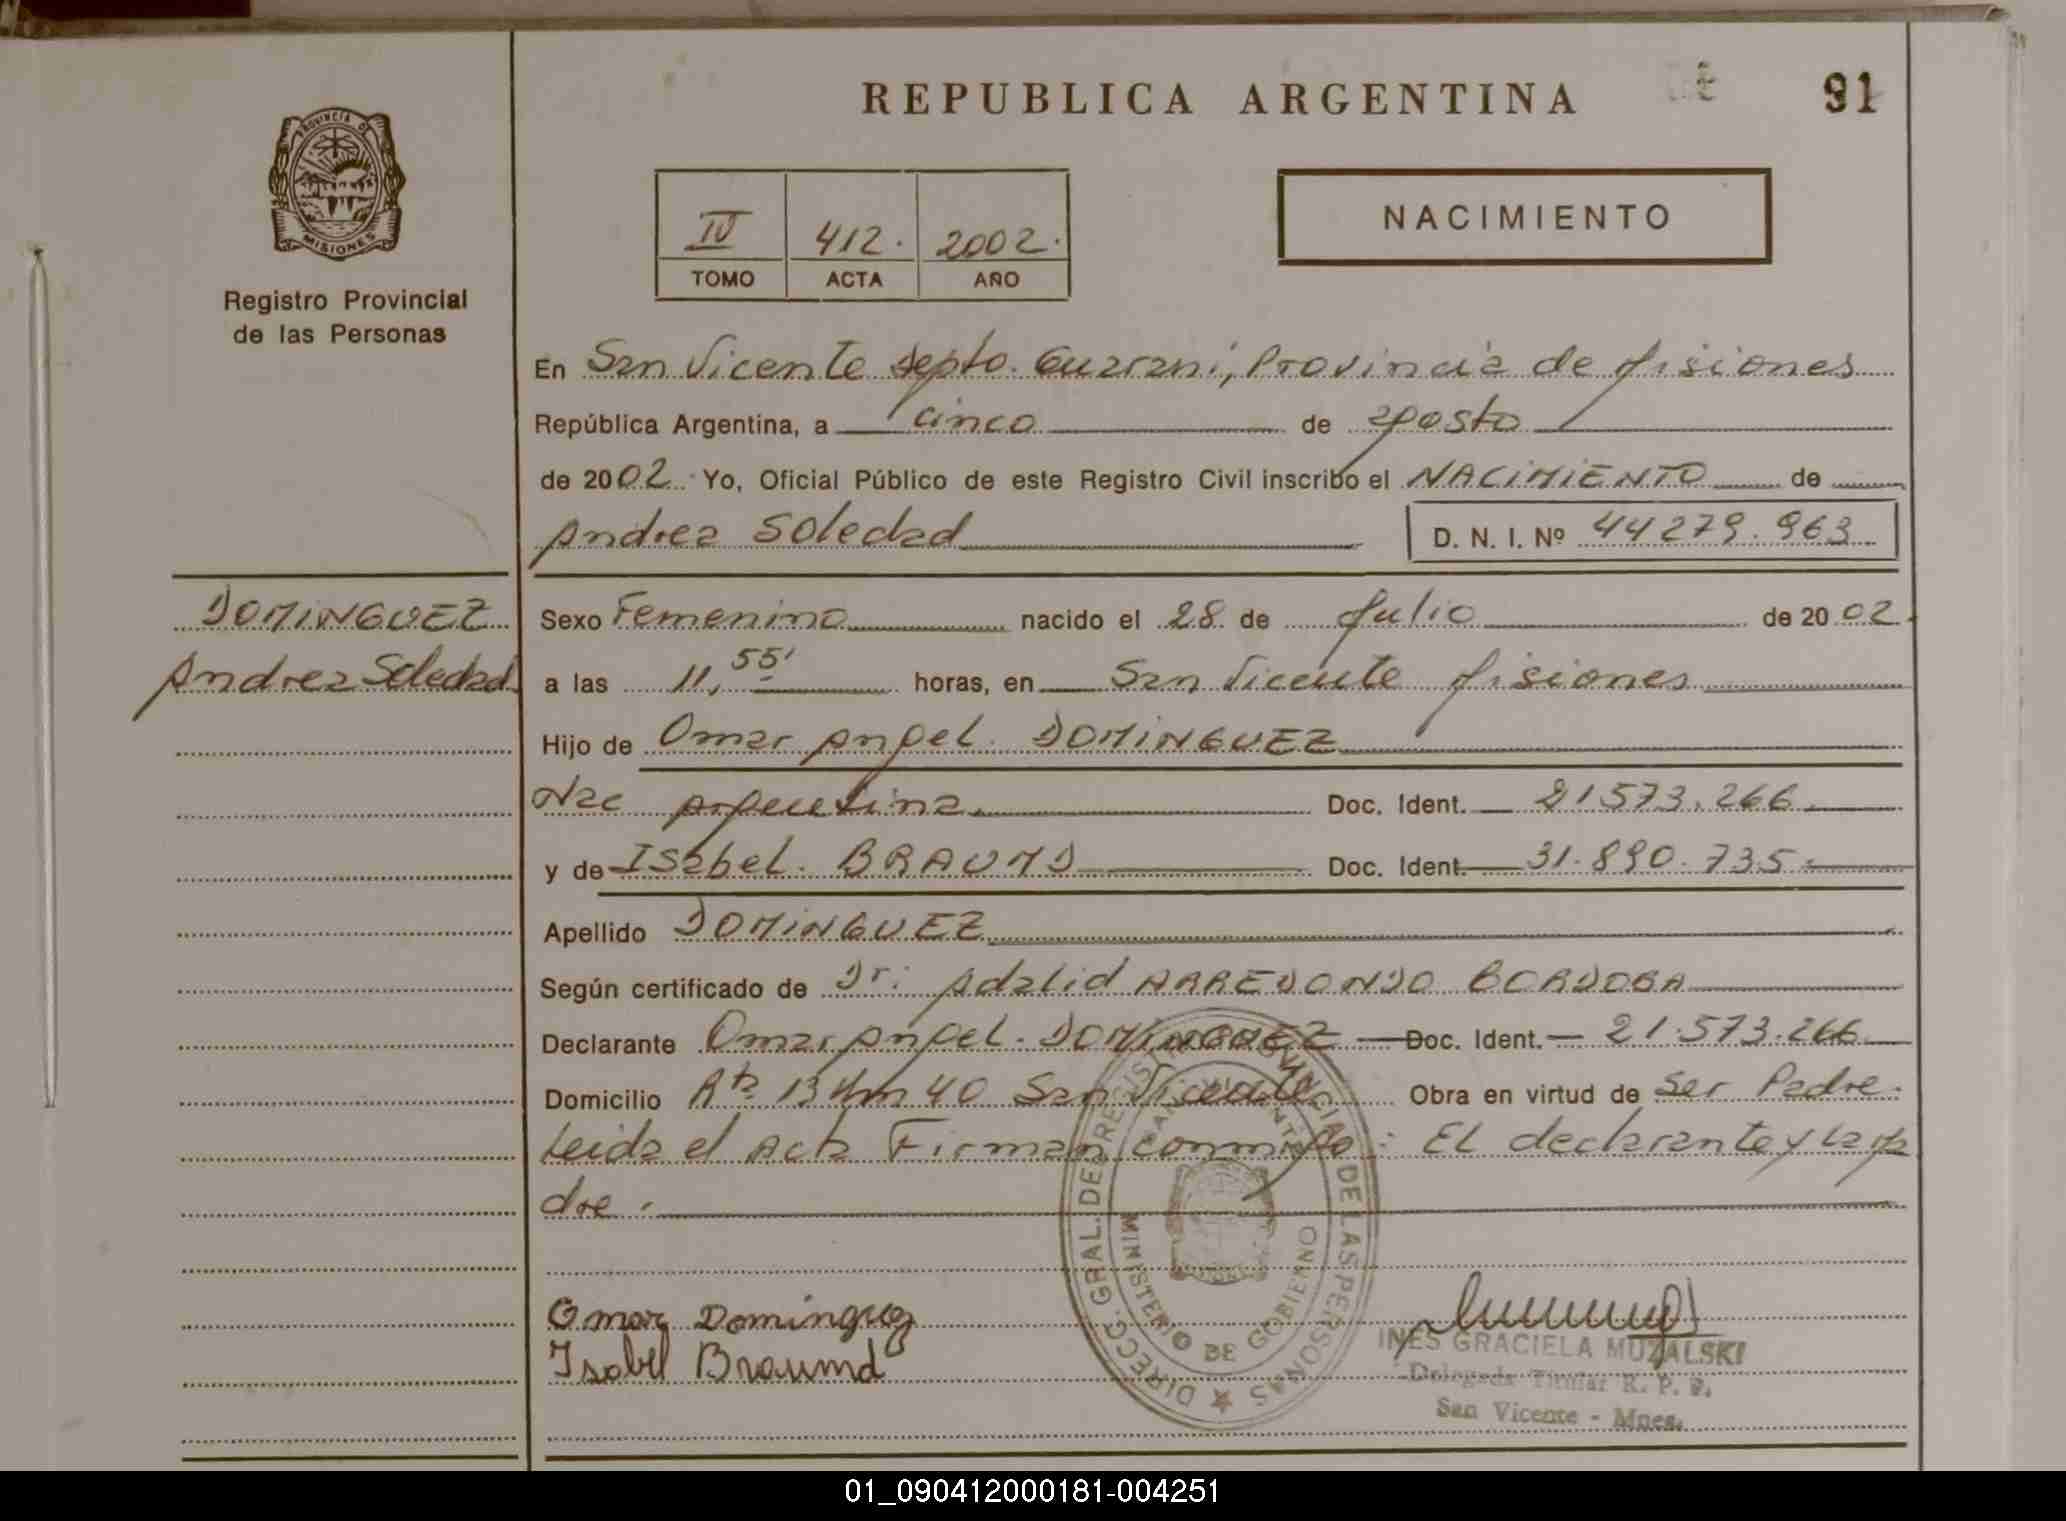 REPUBLICA ARGENTINA
91
PROVINCIA DE
MISIONES
Registro Provincial
de las Personas
IV 412. 2002.
TOMO ACTA AÑO
NACIMIENTO
En San Vicente depto. Guarani, Provincia de Misiones
República Argentina, a cinco de agosto
de 2002 Yo, Oficial Público de este Registro Civil inscribo el NACIMIENTO de
Andrea Soledad D. N. I. Nº 44279.963
DOMINGUEZ
Andrea Soledad
Sexo Femenino nacido el 28 de Julio de 2002
a las 11,55' horas, en San Vicente Misiones
Hijo de Omar Angel. DOMINGUEZ
Nac Argentina. Doc. Ident. 21573.266
y de Isabel. BRAUMD Doc. Ident. 31.890.735.
Apellido DOMINGUEZ
Según certificado de Dr: Adalid ARREDONDO CORDOBA
Declarante Omar Angel. DOMINGUEZ Doc. Ident. 21.573.266
Domicilio Rta 13 Km 40 San Vicente Obra en virtud de ser Padre.
Leida el Acta Firman conmigo: EL declarante y la Ma
dre.
DIRECC. GRAL. DEL REGISTRO PROVINCIAL DE LAS PERSONAS
SAN VICENTE
MINISTERIO DE GOBIERNO
Omar Dominguez
Isabel Braumd
INES GRACIELA MUZALSKI
Delegada Titular R. P. P.
San Vicente - Mnes.
01_090412000181-004251